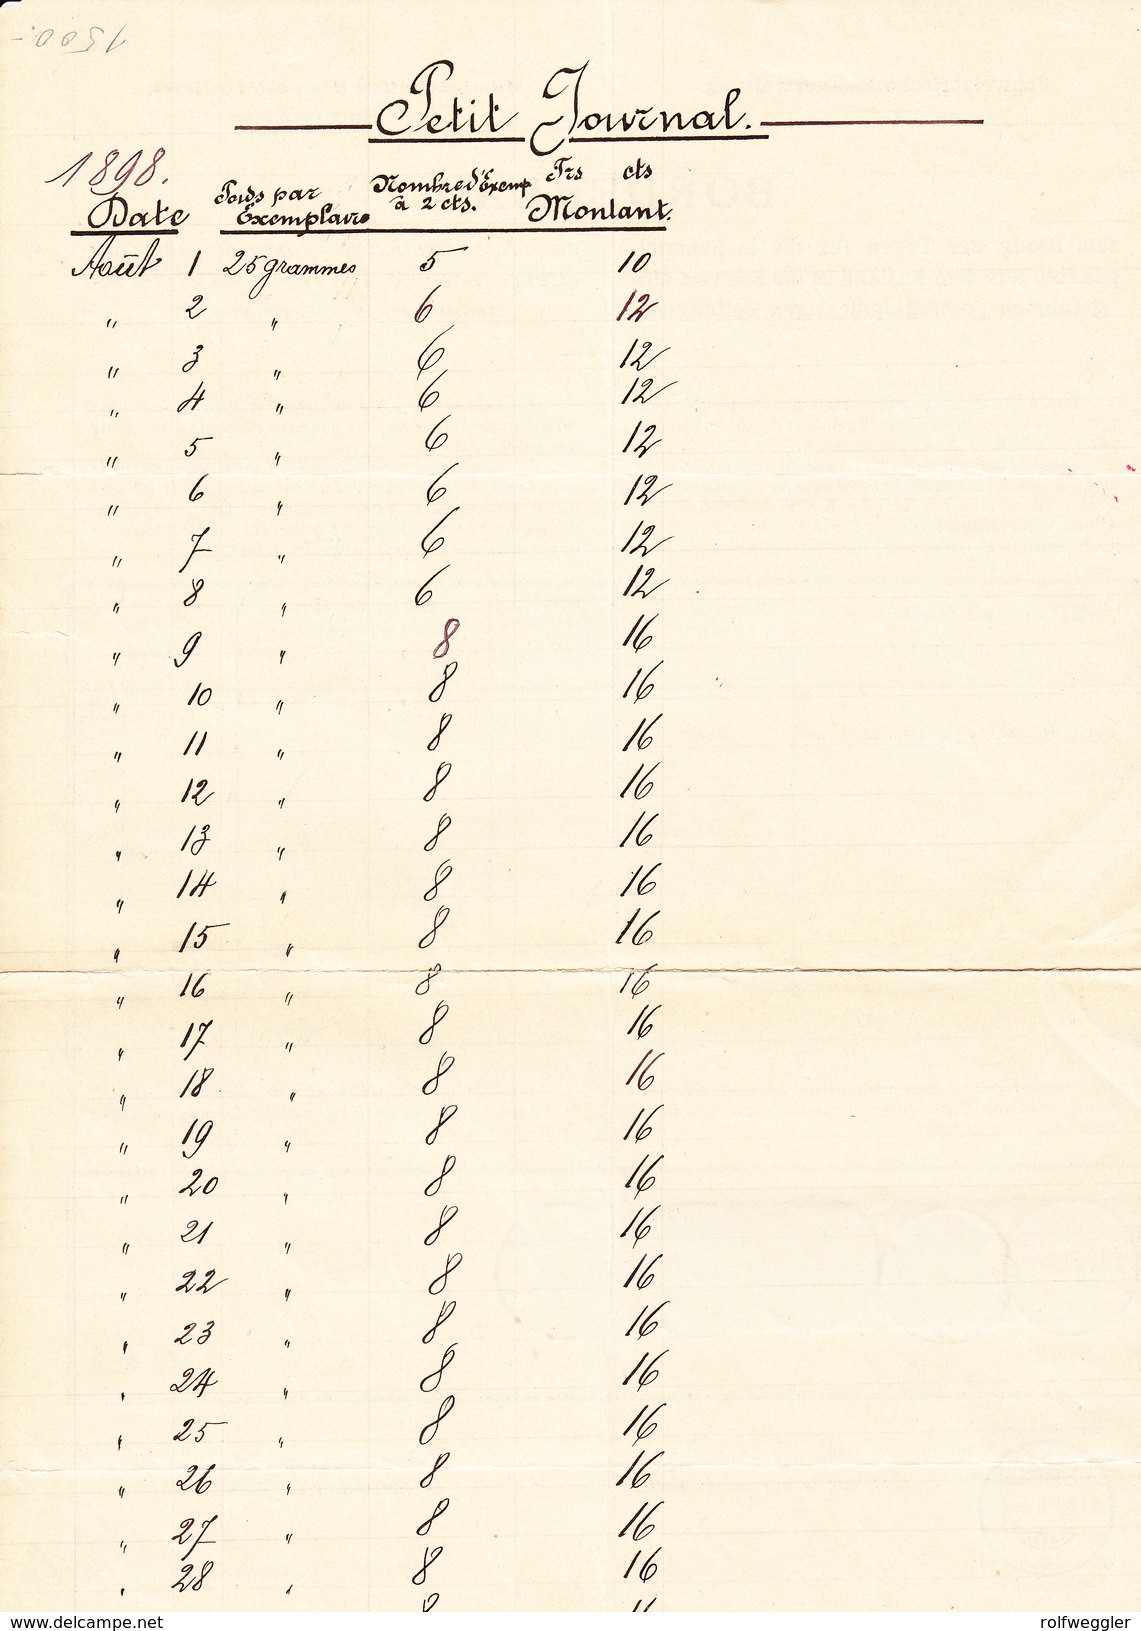 1500.-
Petit Journal.
1898.
Date Poids par Exemplaire Nombre d'Exemp à 2 cts. Frs cts Montant.
Août 1 25 grammes 5 10
" 2 " 6 12
" 3 " 6 12
" 4 " 6 12
" 5 " 6 12
" 6 " 6 12
" 7 " 6 12
" 8 " 6 12
" 9 " 8 16
" 10 " 8 16
" 11 " 8 16
" 12 " 8 16
" 13 " 8 16
" 14 " 8 16
" 15 " 8 16
" 16 " 8 16
" 17 " 8 16
" 18 " 8 16
" 19 " 8 16
" 20 " 8 16
" 21 " 8 16
" 22 " 8 16
" 23 " 8 16
" 24 " 8 16
" 25 " 8 16
" 26 " 8 16
" 27 " 8 16
" 28 " 8 16
www.delcampe.net rolfweggler